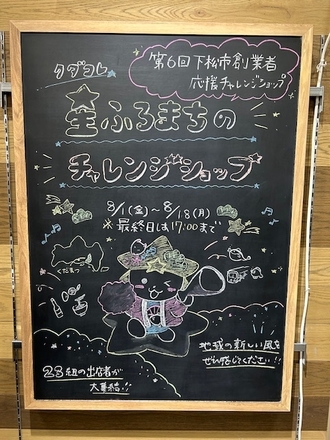 クダコレ
第6回下松市創業者
応援チャレンジショップ
星ふるまちの
チャレンジショップ
8/1(金)~8/18(月)
※最終日は17:00まで
くだまつ
28組の出店者が
大集結!!
地域の新しい風を
ぜひ感じてください!!